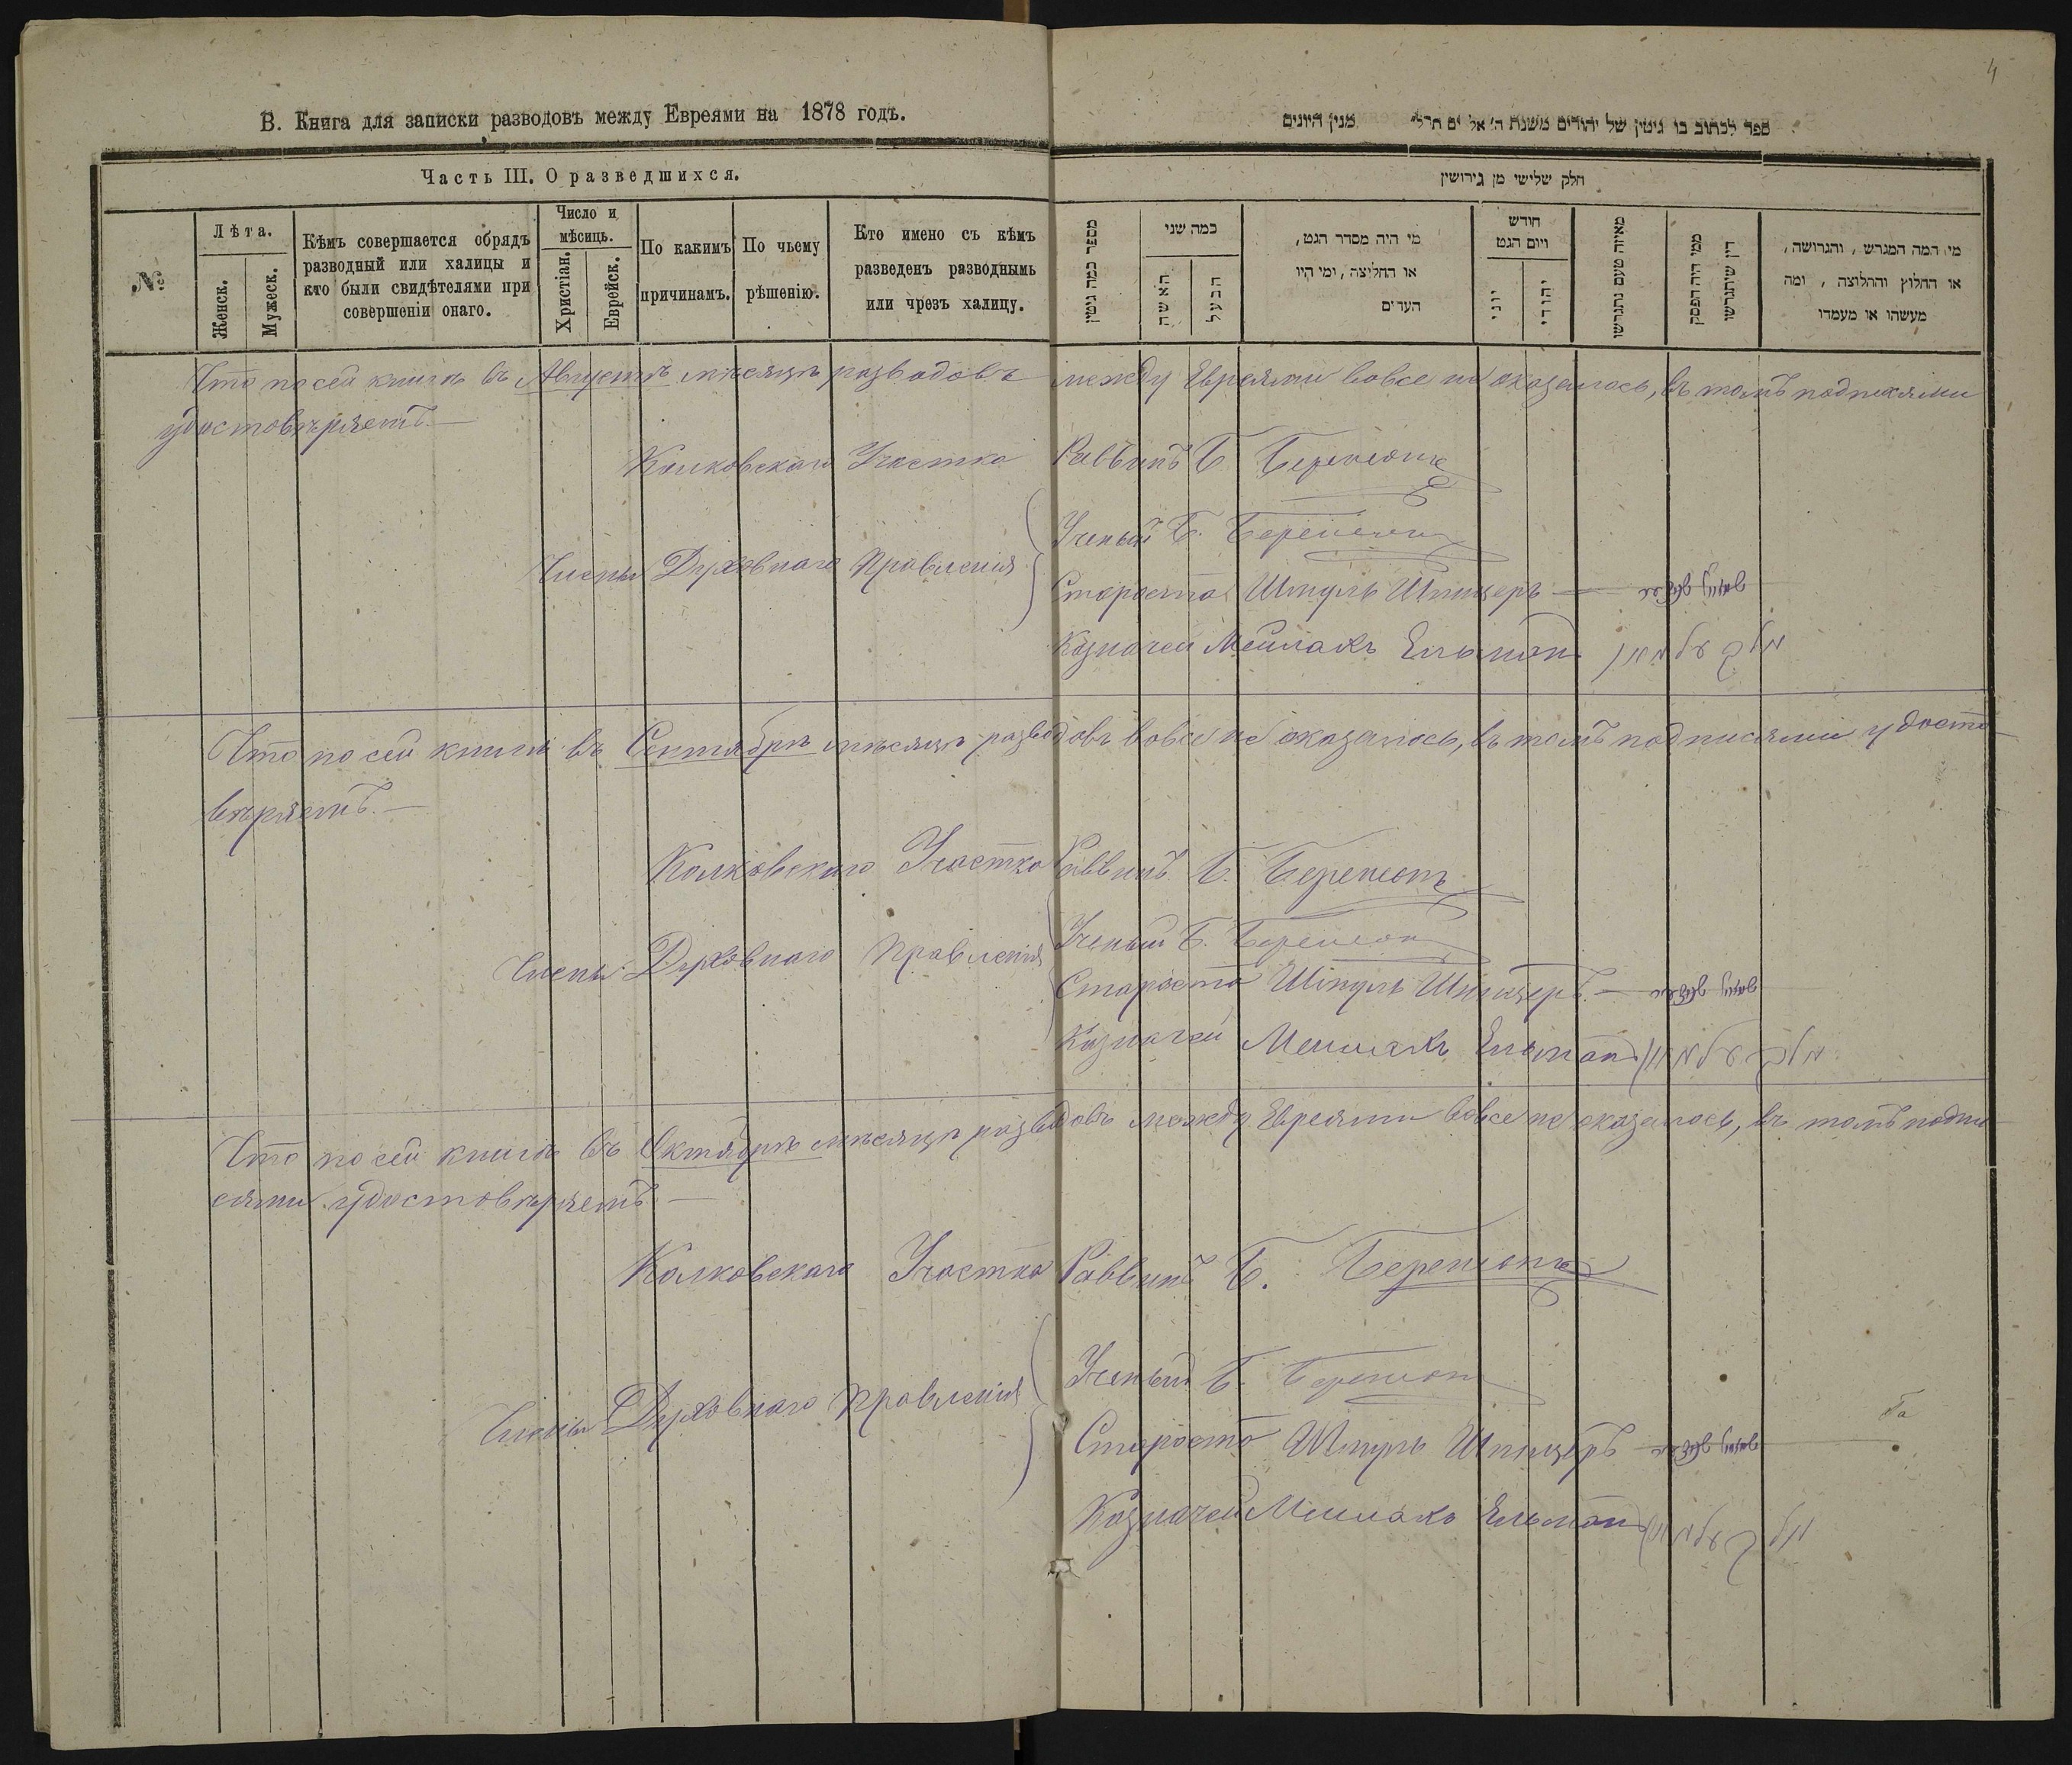 4
В. Книга для записки разводовъ между Евреями на 1878 годъ.
ספר לכתוב בו גיטין של יהודים משנת ה׳ אל׳ ים תרל״ מנין היונים
Часть III. О разведшихся.
חלק שלישי מן גירושין
№
Лѣта.
Женск.
Мужеск.
Кѣмъ совершается обрядъ
разводный или халицы и
кто были свидѣтелями при
совершеніи онаго.
Число и
мѣсяць.
Христіан.
Еврейск.
По какимъ
причинамъ.
По чьему
рѣшенію.
Кто имено съ кѣмъ
разведенъ разводнымъ
или чрезъ халицу.
מספר כמה גיטין
כמה שני
האשה
הבעל
מי היה מסדר הגט,
או החליצה, ומי היו
הערים
חודש
ויום הגט
יוני
יהודי
מאיזה טעם נתגרשו
ממי היה הפסק
דין שיתגרשו
מי המה המגרש, והגרושה,
או החלוץ והחלוצה, ומה
מעשהו או מעמדו
Что по сей книгѣ въ Августѣ мѣсяцѣ разводовъ между Евреями вовсе не оказалось, въ томъ подписями
удостовѣряетъ.—
Колковскаго Участка Раввинъ Б. Беренсонъ
Члены Духовнаго Правленія
Ученый Б. Беренсонъ
Староста Шмуль Шпицеръ —
Казначей Мейлахъ Ельманъ
Что по сей книгѣ въ Сентябрѣ мѣсяцѣ разводовъ вовсе не оказалось, въ томъ подписями удосто-
вѣряетъ.—
Колковскаго Участка Раввинъ Б. Беренсонъ
Члены Духовнаго Правленія
Ученый Б. Беренсонъ
Староста Шмуль Шпицеръ.—
Казначей Мейлахъ Ельманъ
Что по сей книгѣ въ Октябрѣ мѣсяцѣ разводовъ между Евреями вовсе не оказалось, въ томъ подпи-
сями удостовѣряетъ —
Колковскаго Участка Раввинъ Б. Беренсонъ
Члены Духовнаго Правленія
Ученый Б. Беренсонъ
Староста Шмуль Шпицеръ
Казначей Мейлахъ Ельманъ